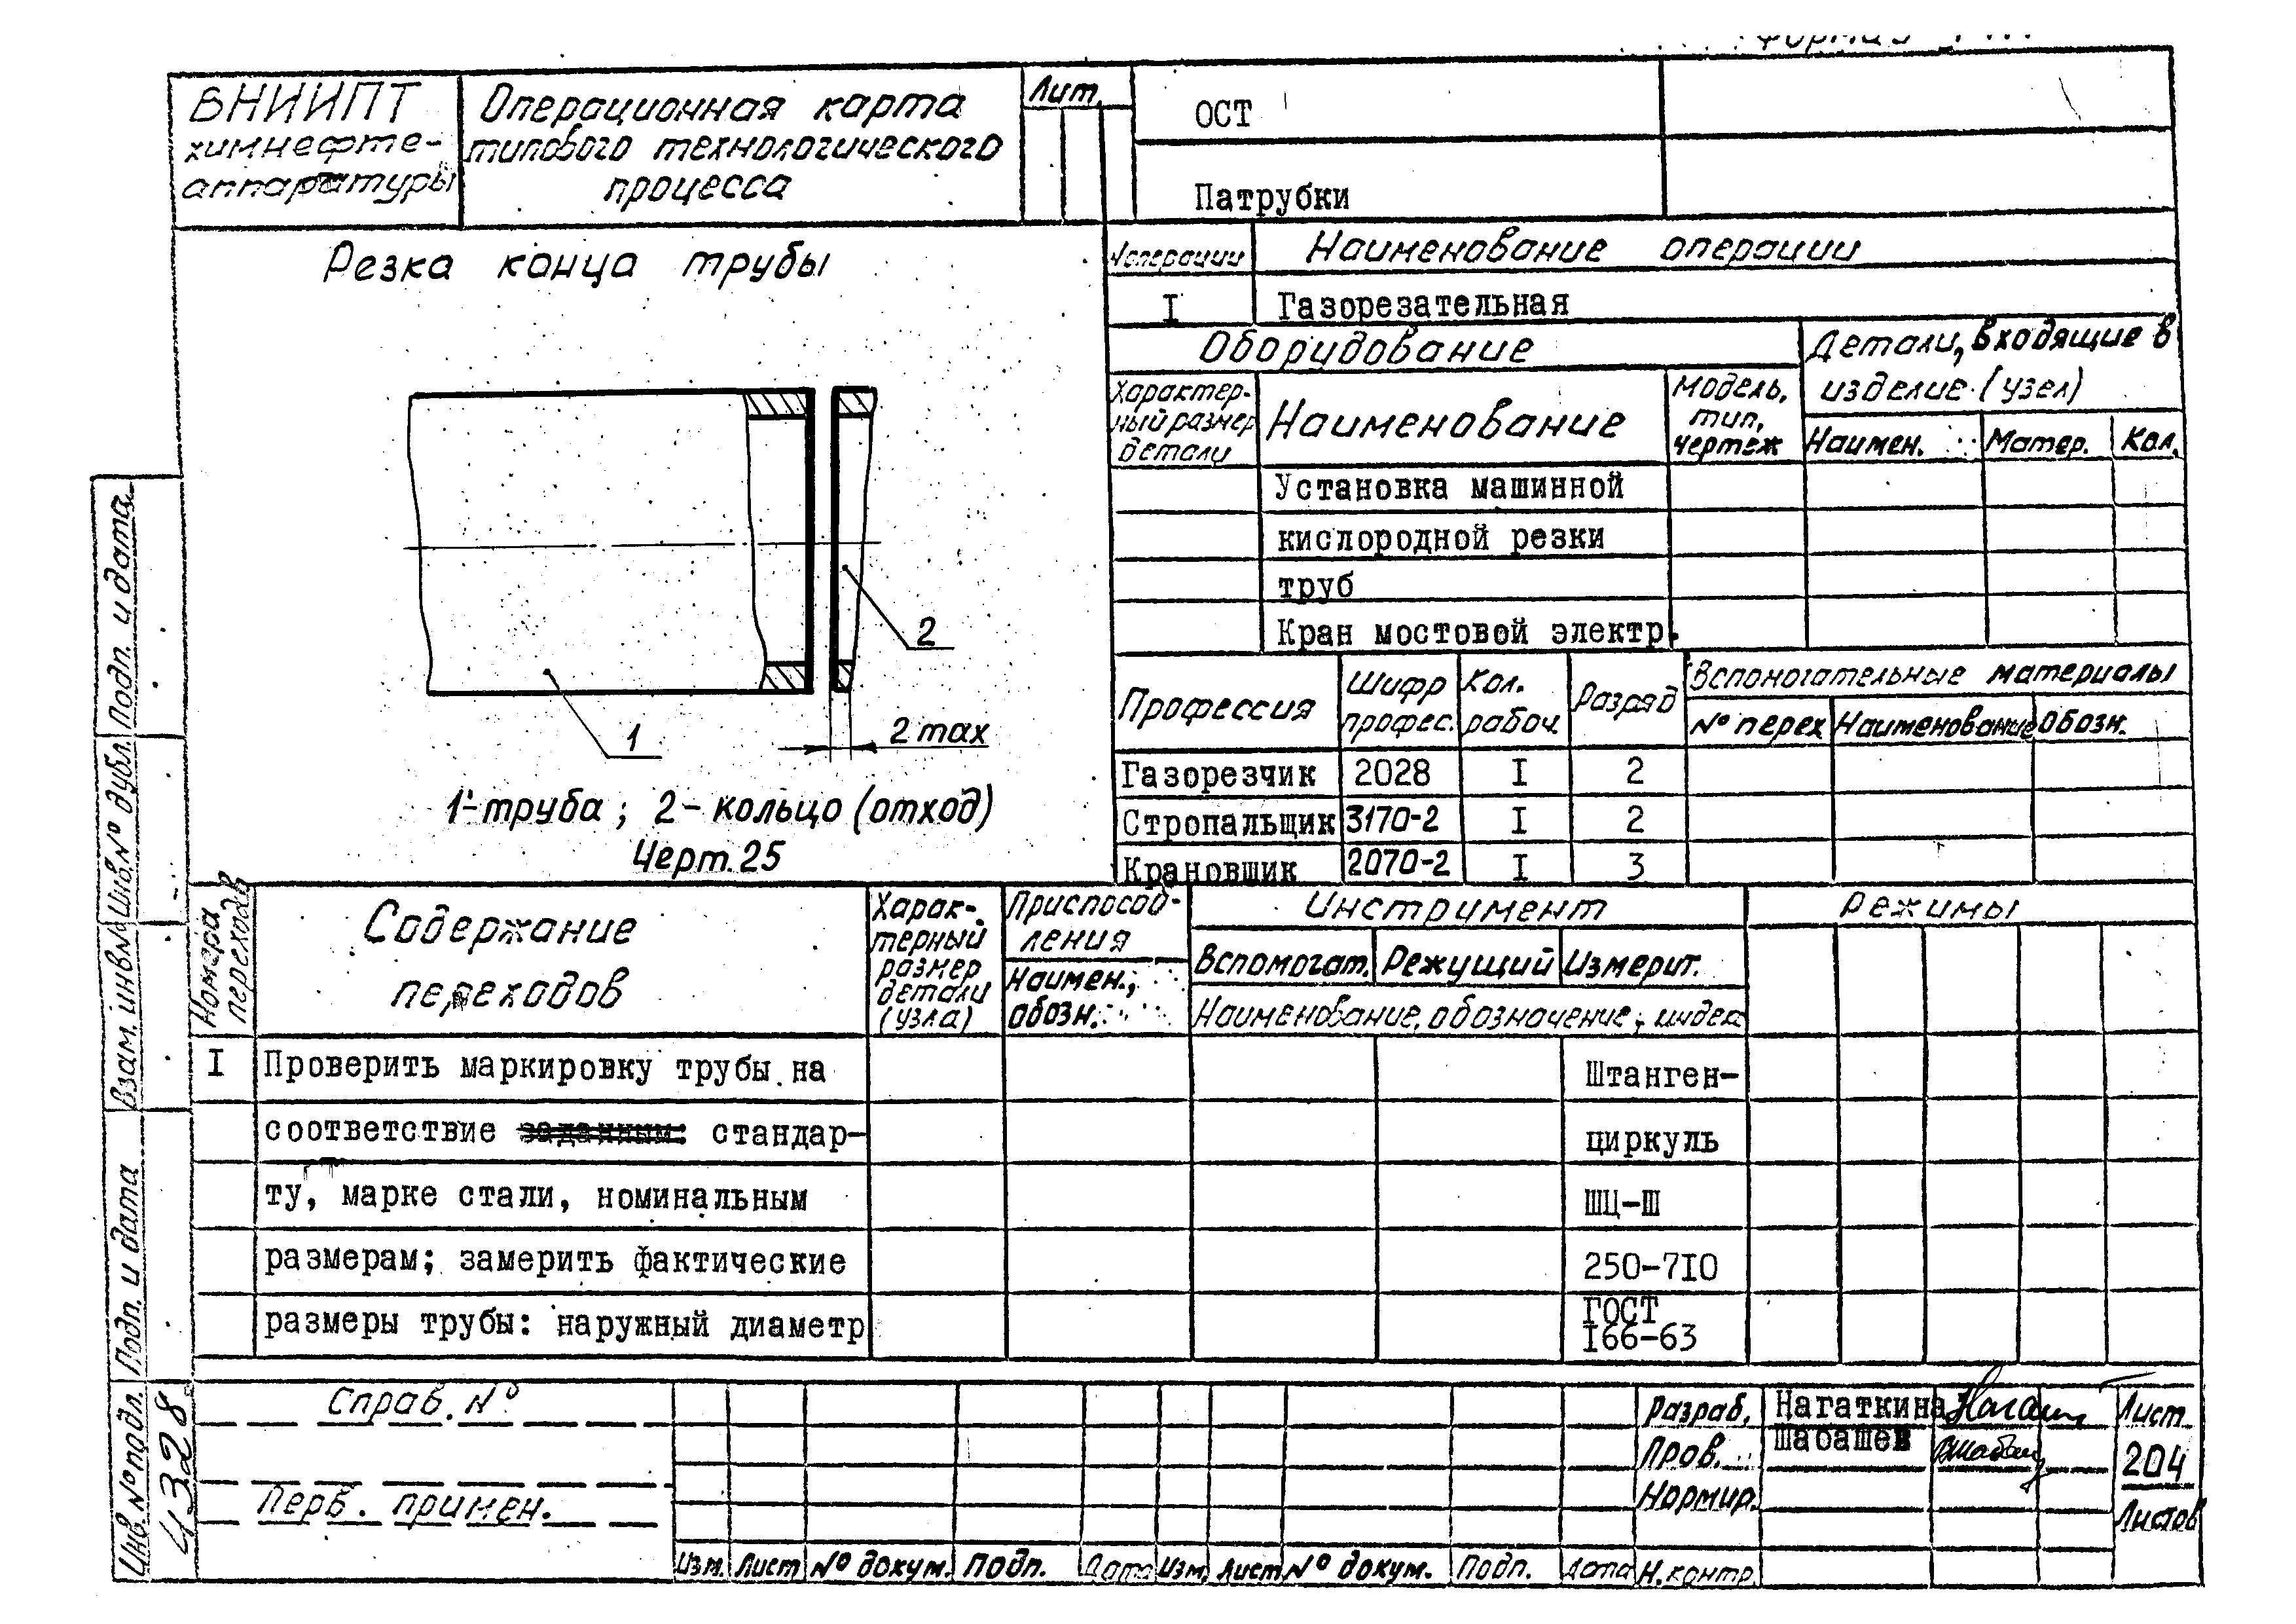 ВНИИПТ
химнефте-
аппаратуры
Операционная карта
типового технологического
процесса
Лит.
ОСТ
Патрубки
Резка конца трубы
2
1
2 max
1-труба; 2-кольцо (отход)
Черт. 25
№ операции
Наименование операции
I
Газорезательная
Оборудование
Детали, входящие в
изделие (узел)
Характер-
ный размер
детали
Наименование
Модель,
тип,
чертеж
Наимен.
Матер.
Кол.
Установка машинной
кислородной резки
труб
Кран мостовой электр.
Профессия
Шифр
профес.
Кол.
рабоч.
Разряд
Вспомогательные материалы
№ перех
Наименование
Обозн.
Газорезчик 2028 I 2
Стропальщик 3170-2 I 2
Крановщик 2070-2 I 3
Номера
переходов
Содержание
переходов
Харак-
терный
размер
детали
(узла)
Приспособ-
ления
Наимен.,
обозн.
Инструмент
Вспомогат.
Режущий
Измерит.
Наименование, обозначение, индекс
Режимы
I Проверить маркировку трубы на
соответствие заданным: стандар-
ту, марке стали, номинальным
размерам; замерить фактические
размеры трубы: наружный диаметр
Штанген-
циркуль
ШЦ-Ш
250-7I0
ГОСТ
I66-63
Справ. №
Перв. примен.
Изм. Лист № докум. Подп. Дата Изм. Лист № докум. Подп. Дата
Разраб. Нагаткина
Пров. Шабашев
Нормир.
Н. контр.
Лист
204
Листов
Подп. и дата
Инв. № дубл.
Взам. инв №
Подп. и дата
Инв. № подл.
4328